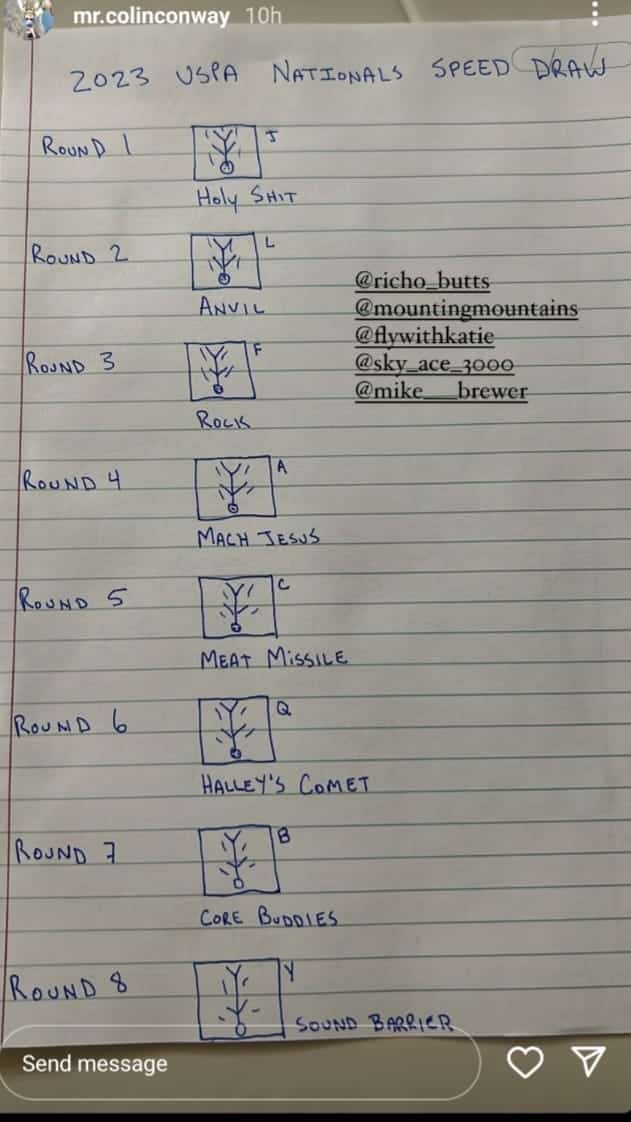 mr.colinconway 10h
2023 USPA NATIONALS SPEED DRAW
ROUND 1
J
Holy SHIT
ROUND 2
L
ANVIL
@richo_butts
@mountingmountains
@flywithkatie
@sky_ace_3000
@mike___brewer
ROUND 3
F
ROCK
ROUND 4
A
MACH JESUS
ROUND 5
C
MEAT MISSILE
ROUND 6
Q
HALLEY'S COMET
ROUND 7
B
CORE BUDDIES
ROUND 8
Y
SOUND BARRIER
Send message